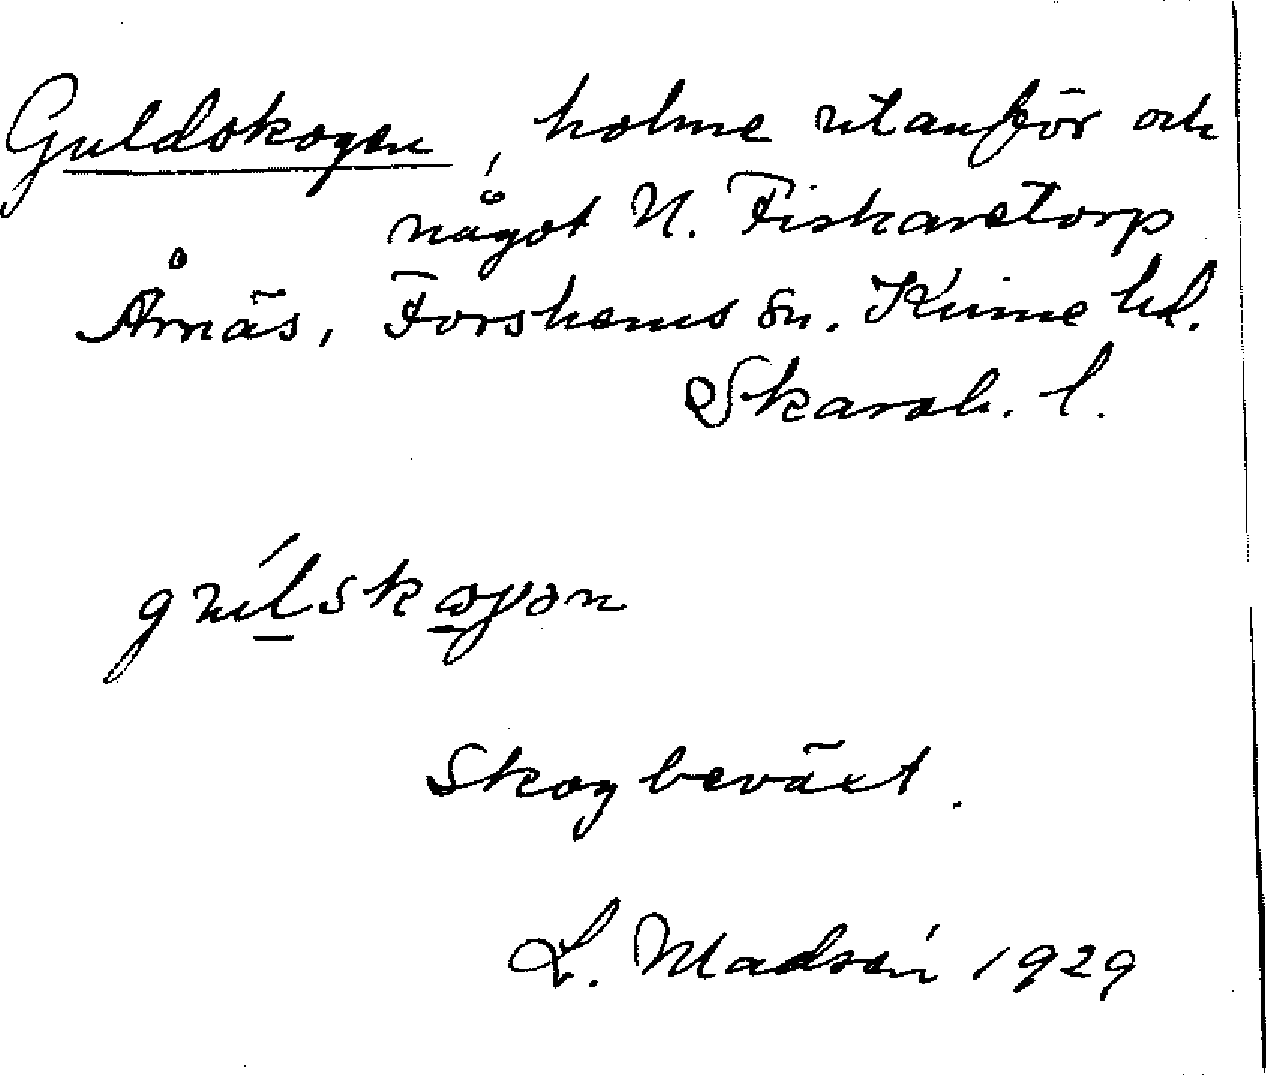 Guldskogen, holme utanför och
något N. Fiskaretorp
Årnäs, Forshems sn. Kinne hd.
Skarab. l.
Skogbeväxt.
L. Madsén 1929